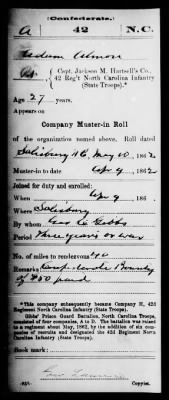 (Confederate.)
A 42 N.C.
Pvt., Capt. Jackson M. Hartsell's Co.,
42 Reg't North Carolina Infantry
(State Troops).*
Age 27 years.
Appears on
Company Muster-in Roll
of the organization named above. Roll dated
Salisbury N C, May 10, 1862
Muster-in to date Apr 9, 1862
Joined for duty and enrolled:
When Apr 9, 186 .
Where Salisbury
By whom Geo C Gibbs
Period Three years or war
No. of miles to rendezvous 40
Remarks Bounty
of $50 paid
*This company subsequently became Company H, 42d
Regiment North Carolina Infantry (State Troops).
Gibbs' Prison Guard Battalion, North Carolina Troops,
consisted of four companies, A to D. The battalion was raised
to a regiment about May, 1862, by the addition of six com-
panies of recruits and designated the 42d Regiment North
Carolina Infantry (State Troops).
Book mark:
Copyist.